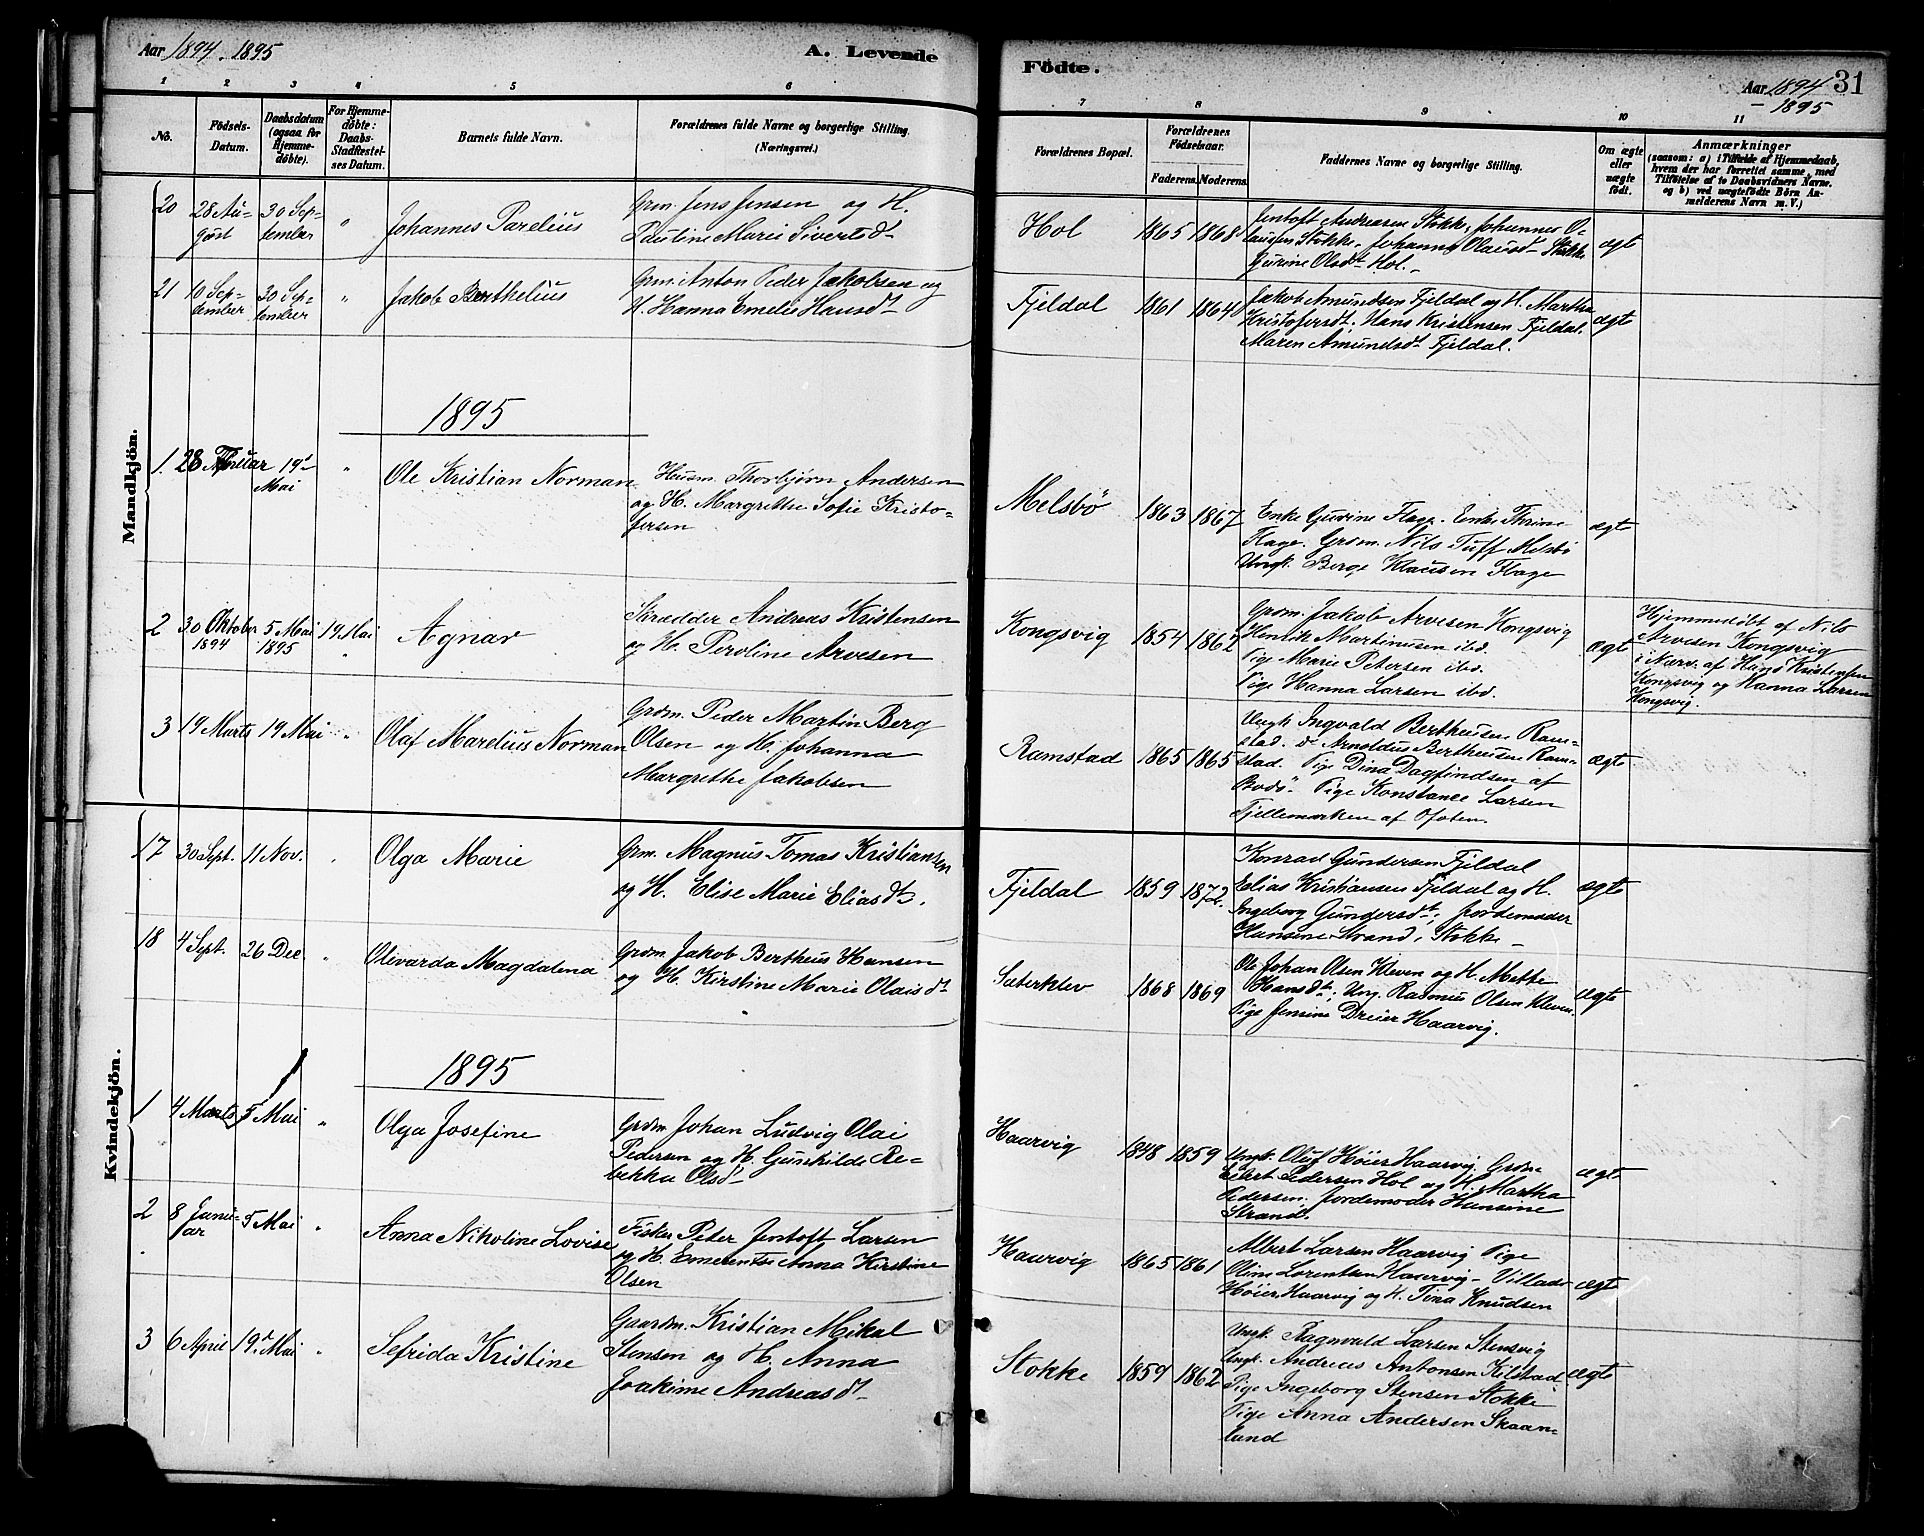 Aar 1894. 1895
A. Levende
1 2 3 4 5 6
No.
Födsels-Datum.
Daabsdatum (ogsaa for Hjemmedöbte).
For Hjemmedöbte: Daabs-Stadfæstelses Datum.
Barnets fulde Navn.
Forældrenes fulde Navne og borgerlige Stilling.
(Næringsvei.)
Mandkjön.
20 28 Au- 30 Sep- " Johannes Parelius Grm. Jens Jensen og H.
gust tember Pauline Marie Sivertsdt
21 10 Sep- 30 Sep- " Jakob Berthelius Grm. Anton Peder Jakobsen og
tember tember H. Hanna Emelie Hansdt
1895
1. 28 19d " Ole Kristian Norman Husm. Thorbjørn Andersen
Mai og H. Margrethe Sofie Kristo-
fersen
2 30 Oktober 5 Mai 19 Mai Agnar Skrædder Andreas Kristensen
1894 1895 " og H. Peroline Arvesen
3 19 Marts 19 Mai " Olaf Marelius Norman Grdm. Peder Martin Berg
Olsen og H. Johanna
Margrethe Jakobsen
Kvindekjön.
17 30 Sept. 11 Nov. " Olga Marie Grm. Magnus Tomas Kristiansen
og H. Elise Marie Eliasdt.
18 4 Sept. 26 Dec " Olevarda Magdalena Grdm. Jakob Bertheus Hansen
og H. Kirstine Marie Olaisdt
1895
1 4 Marts 5 Mai " Olga Josefine Grdm Johan Ludvig Olai
Pedersen og H. Gunhilde Re-
bekka Olsdt
2 8 Janu- 5 Mai " Anna Nikoline Lovise Fisker Peter Jentoft Larsen
ar og H. Emerentse Anna Kirstine
Olsen
3 6 April 19d Mai " Sefrida Kristine Gaardm. Kristian Mikal
Stensen og H. Anna
Joakime Andreasdt
Födte.
Aar 1894 31
- 1895
7 8 9 10 11
Forældrenes Bopæl.
Forældrenes Födselsaar.
Faderens. Moderens.
Faddernes Navne og borgerlige Stilling.
Om ægte eller uægte födt.
Anmærkninger
(saasom: a) i Tilfælde af Hjemmedaab,
hvem der har forrettet samme, med
Tilföielse af to Daabsvidners Navne.
og b) ved uægtefödte Börn An-
melderens Navn m. V.)
Hol 1865 1868 Jentoft Andreasen Stokke, Johannes O- ægte
lausen Stokke. Johanna Olausdt Stokke
Gurine Olsdt Hol.
Fjeldal 1861 1864 Jakob Amundsen Fjeldal og H. Martha ægte
Kristofersdt. Hans Kristensen Fjeldal.
Maren Amundsdt Fjeldal.
Melsbö 1863 1867 Enke Gurine Flage. Enke Thrine ægte
Flage. Grdm. Nils Tuff Melsbö
Ungk. Berge Klausen Flage
Kongsvig 1854 1862 Grdm. Jakob Arvesen Kongsvig ægte Hjemmedöbt af Nils
Henrik Martinusen ibd. Arvesen Kongsvig
Pige Marie Petersen ibd. i Nærv. af Hans Kristensen
Pige Hanna Larsen ibd. Kongsvig og Hanna Larsen
Kongsvig.
Ramstad 1865 1865 Ungk Ingvald Bertheusen Ram- ægte
stad. do Arnoldus Bertheusen Ram-
stad. Pige Dina Dagfindsen af
Bodö. Pige Konstance Larsen
Fjellemarken af Ofoten.
Fjeldal 1859 1872. Konrad Gundersen Fjeldal ægte
Elias Kristiansen Fjeldal og H.
Ingeborg Gundersdt; Jordemoder
Hansine Strand, Stokke
Sæterklev 1868 1869 Ole Johan Olsen Kleven og H. Mette ægte
Hansdt; Ung. Rasmus Olsen Kleven.
Pige Jensine Dreier Haarvig.
Haarvig 1848 1859 Ungk. Oluf Höier Haarvig. Grdm. ægte
Pedersen Hol og H. Martha
Pedersen. Jordemoder Hansine
Strand.
Haarvig 1865 1861 Albert Larsen Haarvig Pige ægte
Oline Lorentsen Haarvig - Villads
Höier Haarvig og H. Tina Knudsen
Stokke 1859 1862 Ungk. Ragnvald Larsen Stensvig ægte
Ungk. Andreas Antonsen Kilstad
Pige Ingeborg Stensen Stokke
Pige Anna Andersen Skaan-
land